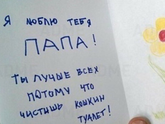 Я люблю тебя
ПАПА!
Ты лучые всех
потому что
чистишь кошкин
туалет!